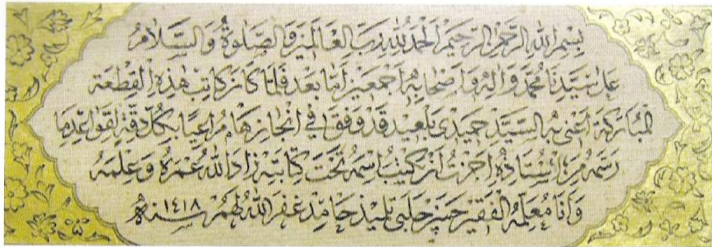 بسم الله الرحمن الرحيم الحمد لله رب العالمين والصلوة والسلام
على سيدنا محمد وآله وأصحابه أجمعين أما بعد فلما كان كاتب هذه القطعة
المباركة أعني به السيد حميدي بلعيد قد وفق في إنجازها مراعيا بكل دقة لقواعد ما
رسمه من أستاذه أجزت أن يكتب اسمه تحت كتابته زاد الله عمره وعلمه
وأنا معلمه الفقير حسن چلبي تلميذ حامد غفر الله لهم سنة ١٤١٨هـ